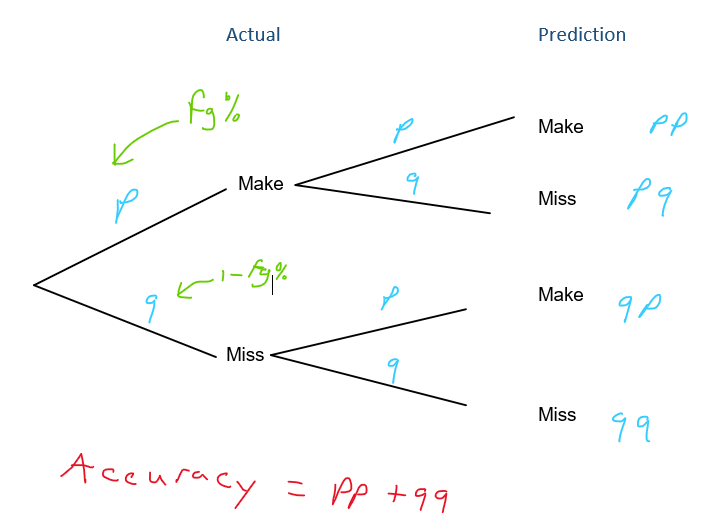 Actual Prediction
Fg%
P Make P Make PP
q Miss Pq
q 1-Fg% P Make qP
Miss q Miss qq
Accuracy = PP + qq